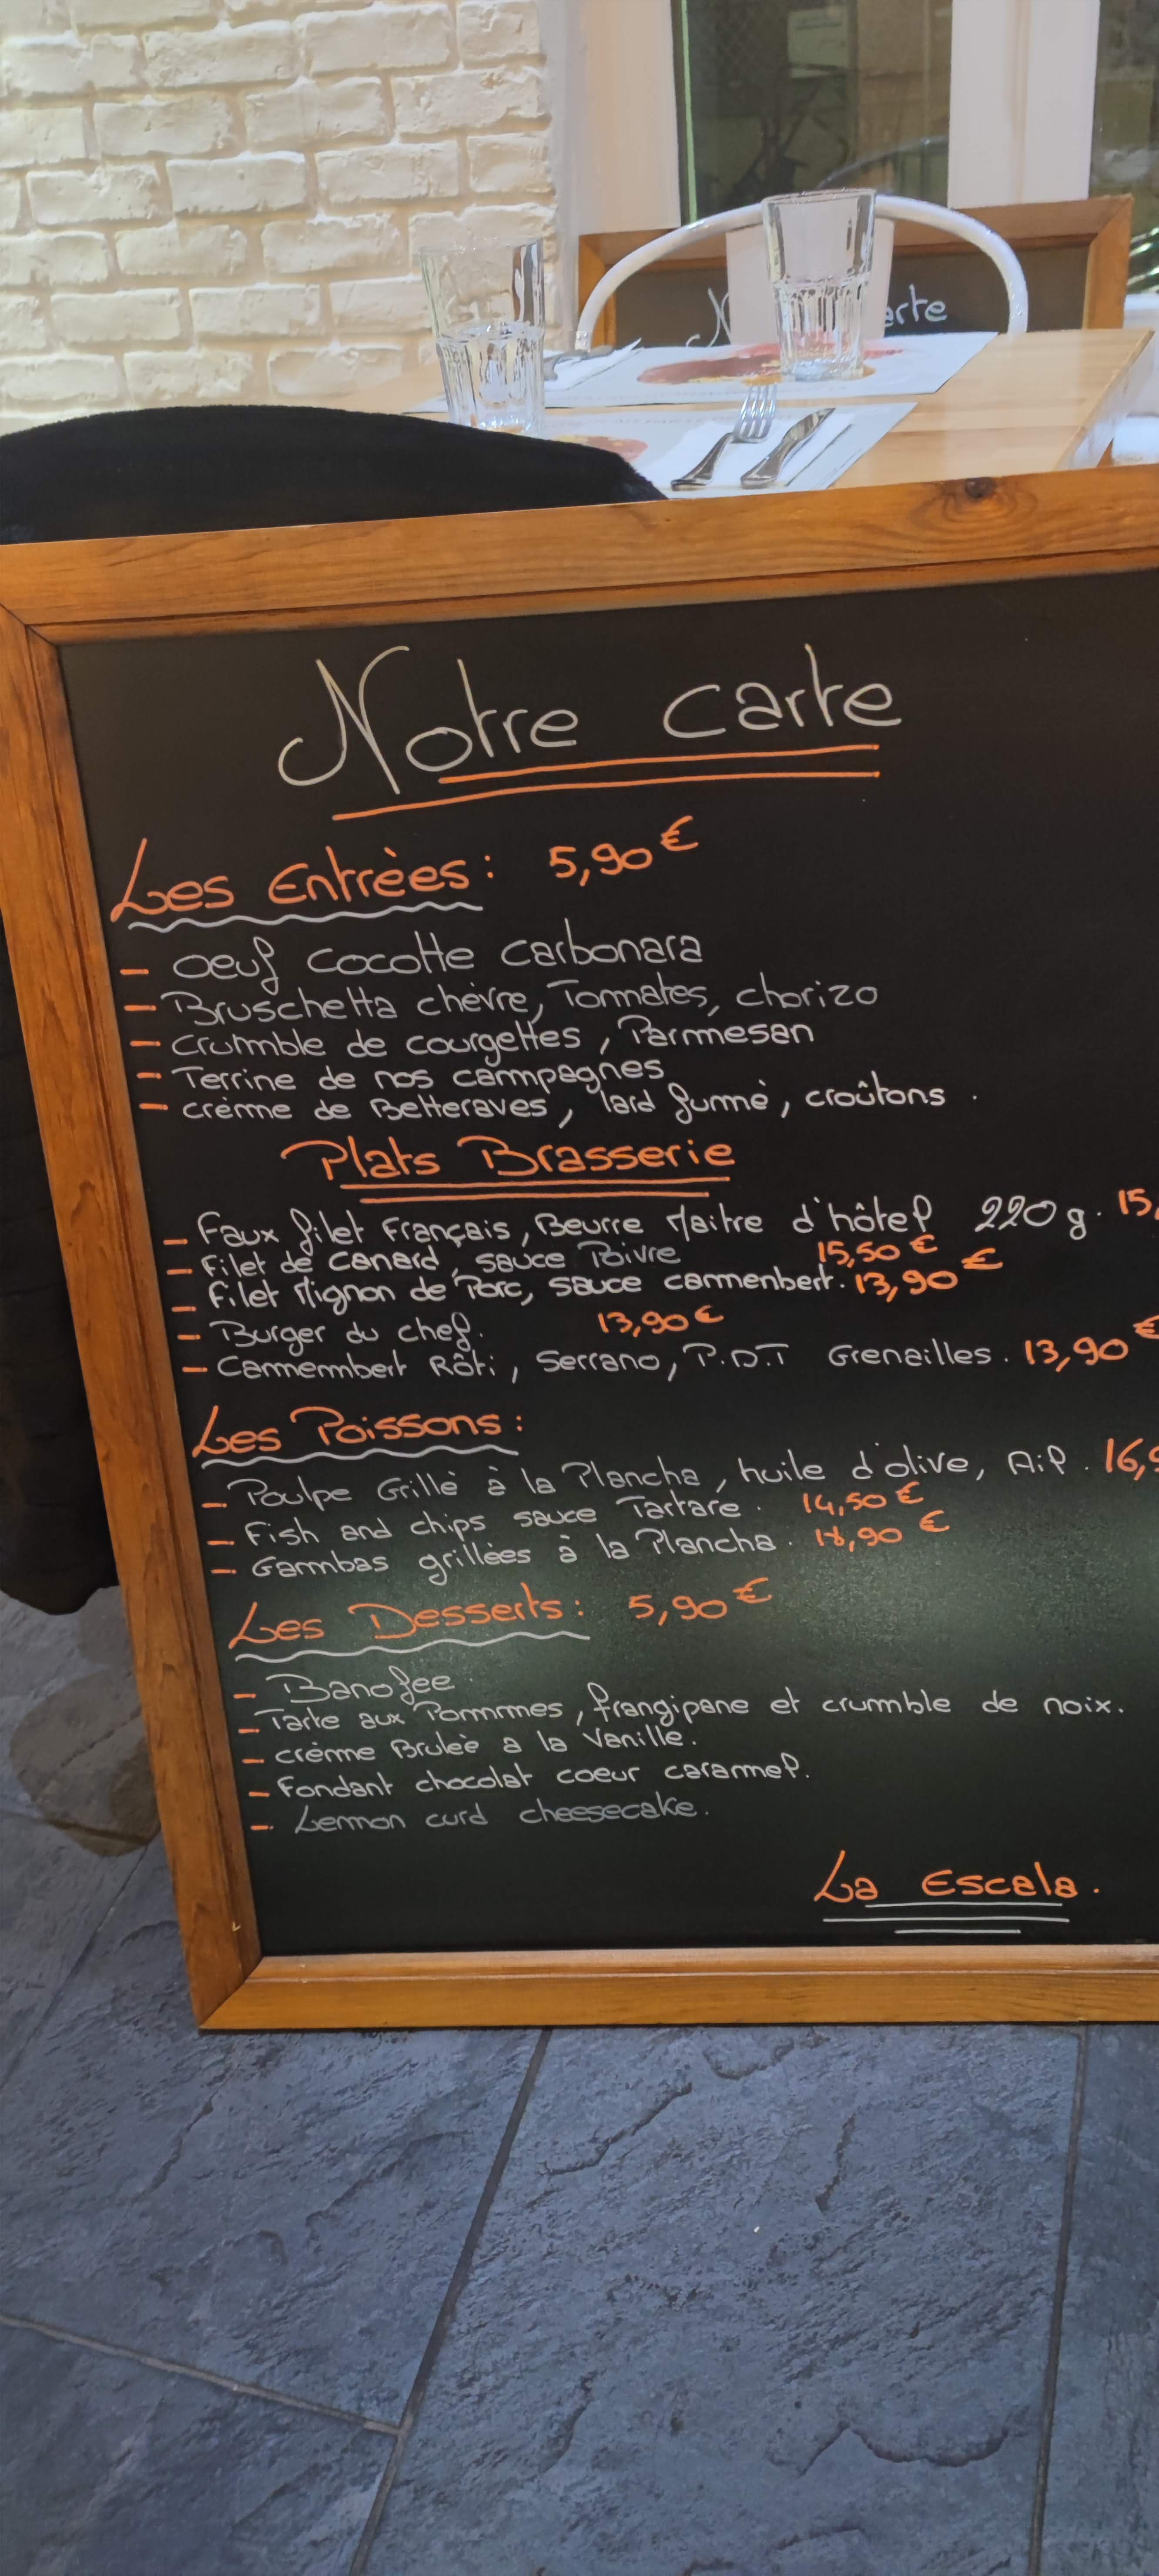 N arte
Notre carte
Les Entrèes : 5,90€
- Oeuf cocotte carbonara
- Bruschetta chèvre, Tommates, chorizo
- Crumble de courgettes, Parmesan
- Terrine de nos campagnes
- crème de Betteraves, lard fummè, croûtons.
Plats Brasserie
- Faux filet Français, Beurre Maitre d'hôtel 220g. 15,
- Filet de Canard, sauce Poivre 15,50€
- Filet Mignon de Porc, sauce cammenbert. 13,90€
- Burger du chef. 13,90€
- Cammembert Rôti, Serrano, P.D.T Grenailles. 13,90€
Les Poissons :
- Poulpe Grillè à la Plancha, huile d'olive, Ail. 16,9
- Fish and chips sauce Tartare. 14,50€
- Gambas grillèes à la Plancha. ,90€
Les Desserts : 5,90€
- Banofee.
- Tarte aux Pommes, frangipane et crumble de noix.
- crème Brulèè a la Vanille.
- Fondant chocolat coeur caramel.
- Lemmon curd cheesecake.
La Escala.